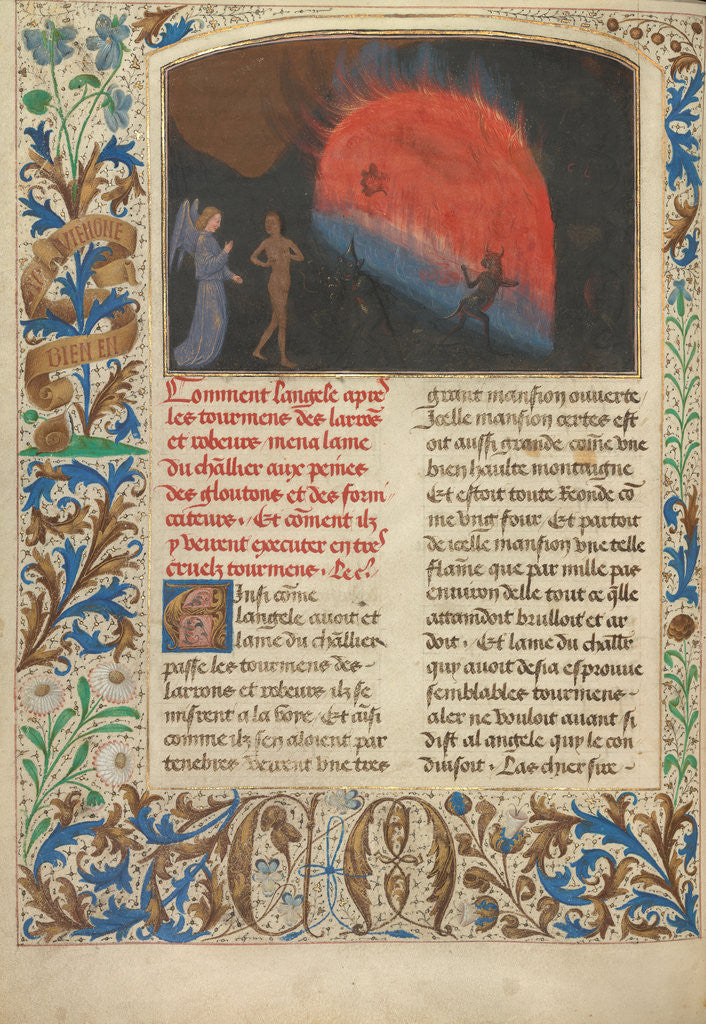 VIEHGNE
BIEN EN
Comment langele apres
les tourmens des larrõs
et robeurs mena lame
du chl̃lier aux peines
des gloutons et des forni
cateurs. Et cõment ilz
y veirent executer entre
cruelz tourmens. Le cħ.
Einsi cõme
langele auoit et
lame du chl̃lier
passe les tourmens des
larrons et robeurs ilz se
misrent a la voye / Et ainsi
comme ilz sen aloient par
tenebres veirent vne tres
grant mansion ouuerte /
Icelle mansion certes est
oit aussi grande cõme vne
bien haulte montaigne
Et estoit toute Reonde cõ
me vng four / Et partoit
de icelle mansion vne telle
flame que par mille pas
enuiron delle tout ce q̃lle
attaindoit brulloit et ar
doit. Et lame du chl̃lr̃
quy auoit desia esprouue
semblables tourmens
aler ne vouloit auant si
dist al angele quy le con
duisoit. Las chier sire
CM